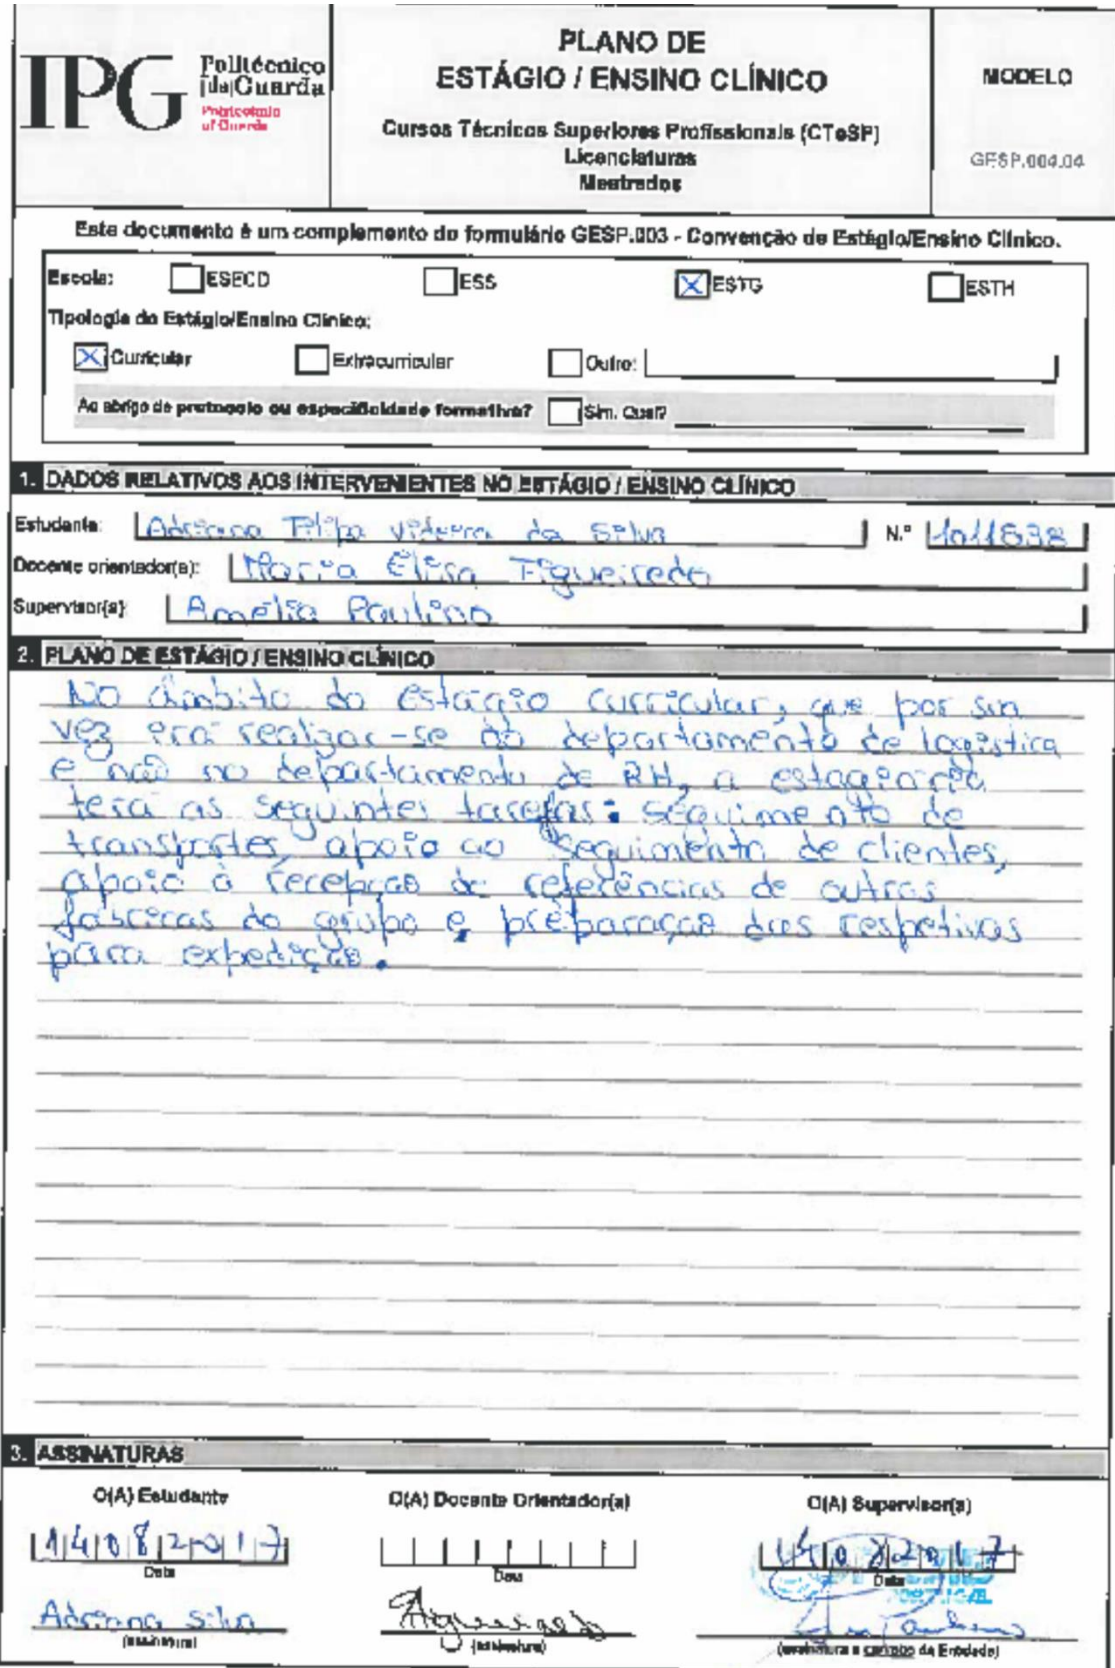 IPG Politécnico
|da|Guarda
Polytechnic
of Guarda
PLANO DE
ESTÁGIO / ENSINO CLÍNICO
Cursos Técnicos Superiores Profissionais (CTeSP)
Licenciaturas
Mestrados
MODELO
GESP.004.04
Este documento é um complemento do formulário GESP.003 - Convenção de Estágio/Ensino Clínico.
Escola: ESECD ESS ESTG ESTH
Tipologia do Estágio/Ensino Clínico:
Curricular Extracurricular Outro:
Ao abrigo de protocolo ou especificidade formativa? Sim. Qual?
1. DADOS RELATIVOS AOS INTERVENIENTES NO ESTÁGIO / ENSINO CLÍNICO
Estudante: Adriana Filipa Videira da Silva N.º 1011638
Docente orientador(a): Maria Elisa Figueiredo
Supervisor(a): Amélia Paulino
2. PLANO DE ESTÁGIO / ENSINO CLÍNICO
No âmbito do estágio curricular, que por sua
vez irá realizar-se no departamento de logística
e não no departamento de RH, a estagiária
terá as seguintes tarefas: seguimento de
transportes, apoio ao seguimento de clientes,
apoio à recepção de referências de outras
fábricas do grupo e, preparação das respetivas
para expedição.
3. ASSINATURAS
O(A) Estudante
14082017
Data
Adriana Silva
(assinatura)
O(A) Docente Orientador(a)
Data
Figueiredo
(assinatura)
O(A) Supervisor(a)
14082017
Data
PORTUGAL
(assinatura e carimbo da Entidade)